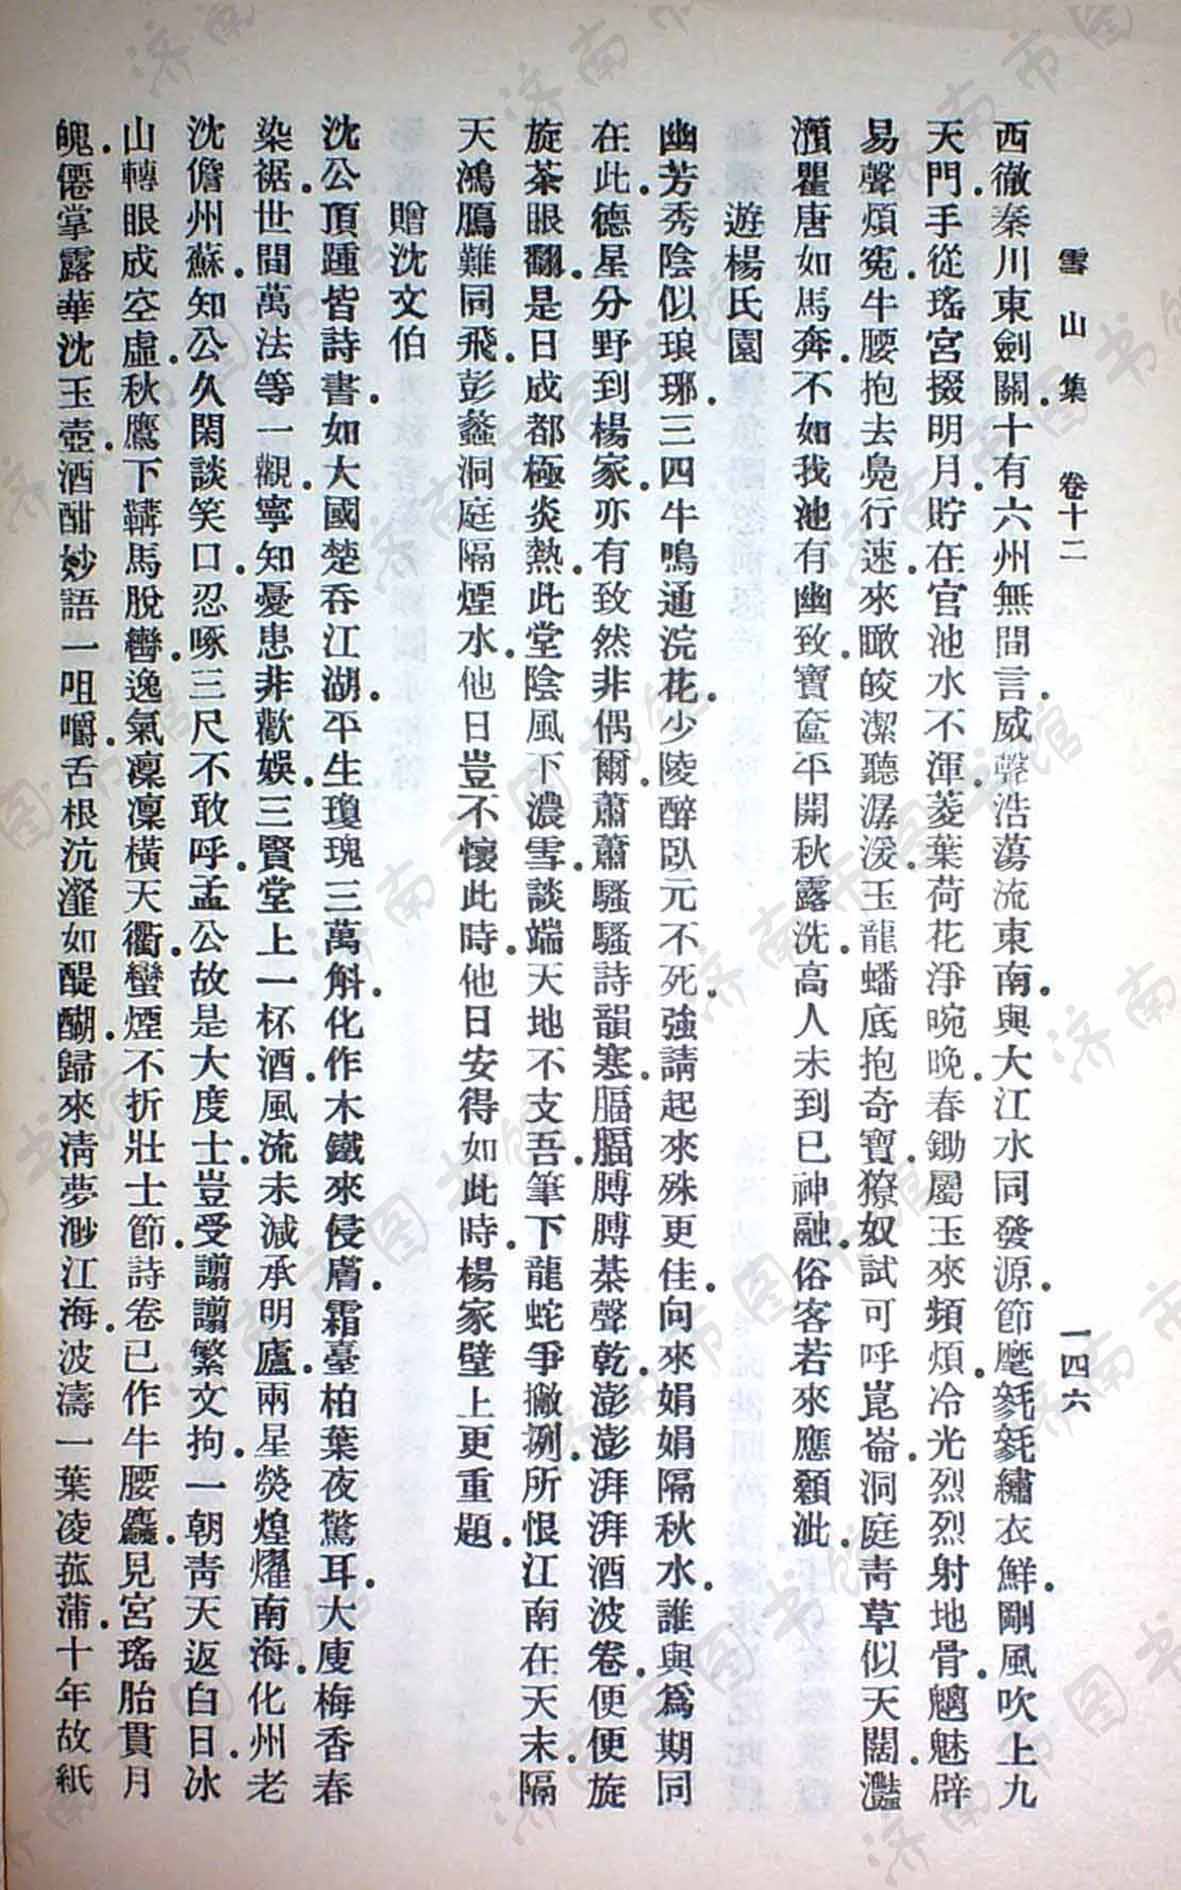 雪山集 卷十二 一四六
西徹秦川東劍關。十有六州無間言。威聲浩蕩流東南。與大江水同發源。節麾毿毿繡衣鮮。剛風吹上九
天門。手從瑤宮掇明月。貯在官池水不渾。菱葉荷花淨晚晚。春鋤屬玉來頻煩。冷光烈烈射地骨。魑魅辟
易聲煩冤。牛腰抱去鳧行速。來瞰皎潔聽潺湲。玉龍蟠底抱奇寶。獠奴試可呼崑崙。洞庭青草似天闊。灔
澦瞿唐如馬奔。不如我池有幽致。寶奩平開秋露洗。高人未到已神融。俗客若來應顙泚。
遊楊氏園
幽芳秀陰似琅琊。三四牛鳴通浣花。少陵醉臥元不死。強請起來殊更佳。向來娟娟隔秋水。誰與爲期同
在此。德星分野到楊家。亦有致然非偶爾。蕭蕭騷騷詩韻寒。腷腷膊膊棊聲乾。澎澎湃湃酒波卷。便便旋
旋茶眼翻。是日成都極炎熱。此堂陰風下濃雪。談端天地不支吾。筆下龍蛇爭撇捩。所恨江南在天末。隔
天鴻鴈難同飛。彭蠡洞庭隔煙水。他日豈不懷此時。他日安得如此時。楊家壁上更重題。
贈沈文伯
沈公頂踵皆詩書。如大國楚吞江湖。平生瓊瑰三萬斛。化作木鐵來侵膚。霜臺柏葉夜驚耳。大庾梅香春
染裾。世間萬法等一觀。寧知憂患非歡娛。三賢堂上一杯酒。風流未減承明廬。兩星熒煌燿南海。化州老
沈儋州蘇。知公久閑談笑口。忍啄三尺不敢呼。孟公故是大度士。豈受謭謭繁文拘。一朝青天返白日。冰
山轉眼成空虛。秋鷹下鞲馬脫轡。逸氣凜凜橫天衢。蠻煙不折壯士節。詩卷已作牛腰麤。見宮瑤胎貫月
魄。僊掌露華沈玉壺。酒酣妙語一咀嚼。舌根沆瀣如醍醐。歸來淸夢渺江海。波濤一葉凌菰蒲。十年故紙